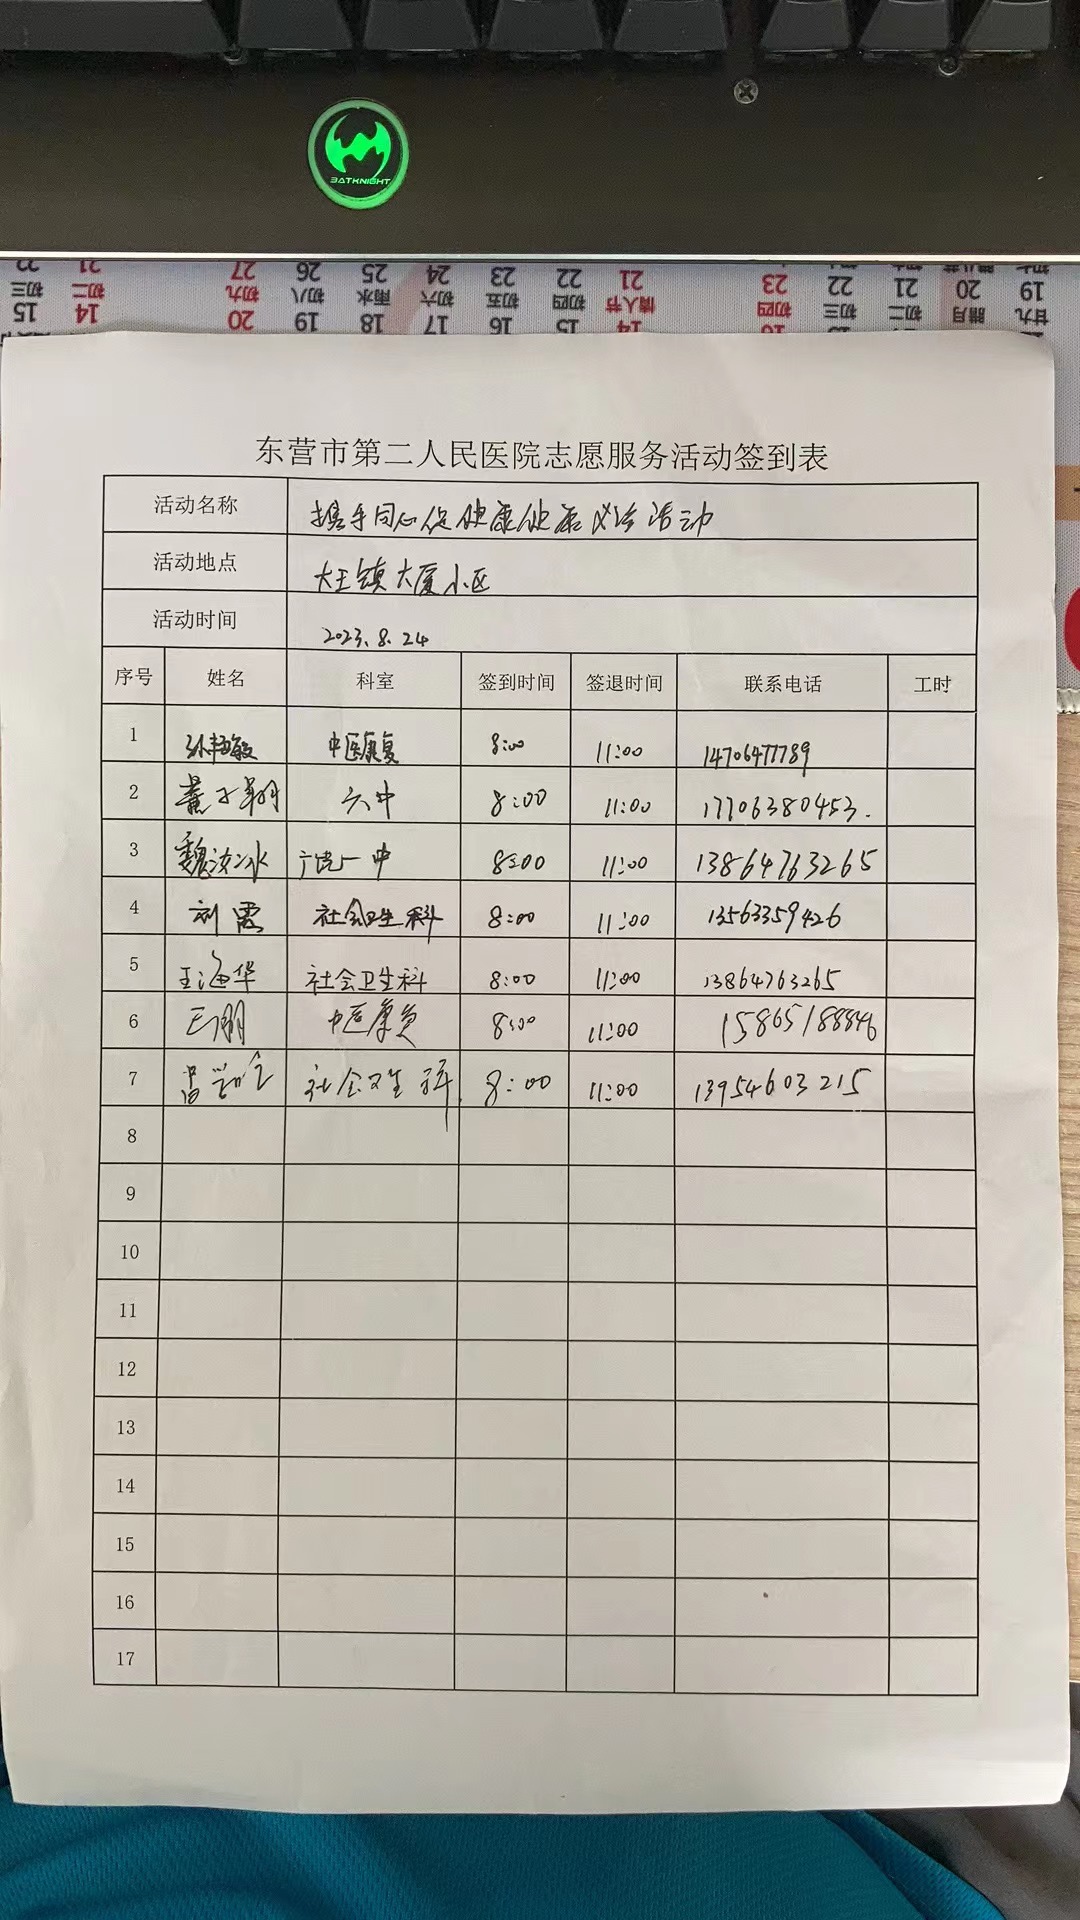 BATKNIGHT
东营市第二人民医院志愿服务活动签到表
活动名称 携手同心促健康健康义诊活动
活动地点 大王镇大厦小区
活动时间 2023.8.24
序号 姓名 科室 签到时间 签退时间 联系电话 工时
1 中医康复 8:00 11:00 14706477789
2 董子翔 六中 8:00 11:00 17706380453.
3 魏汝冰 一中 8:00 11:00 13864763265
4 刘霞 社会卫生科 8:00 11:00 13563359426
5 王海华 社会卫生科 8:00 11:00 13864763265
6 王朋 中医康复 8:00 11:00 15865188846
7 社会卫生科 8:00 11:00 13954603215
8
9
10
11
12
13
14
15
16
17